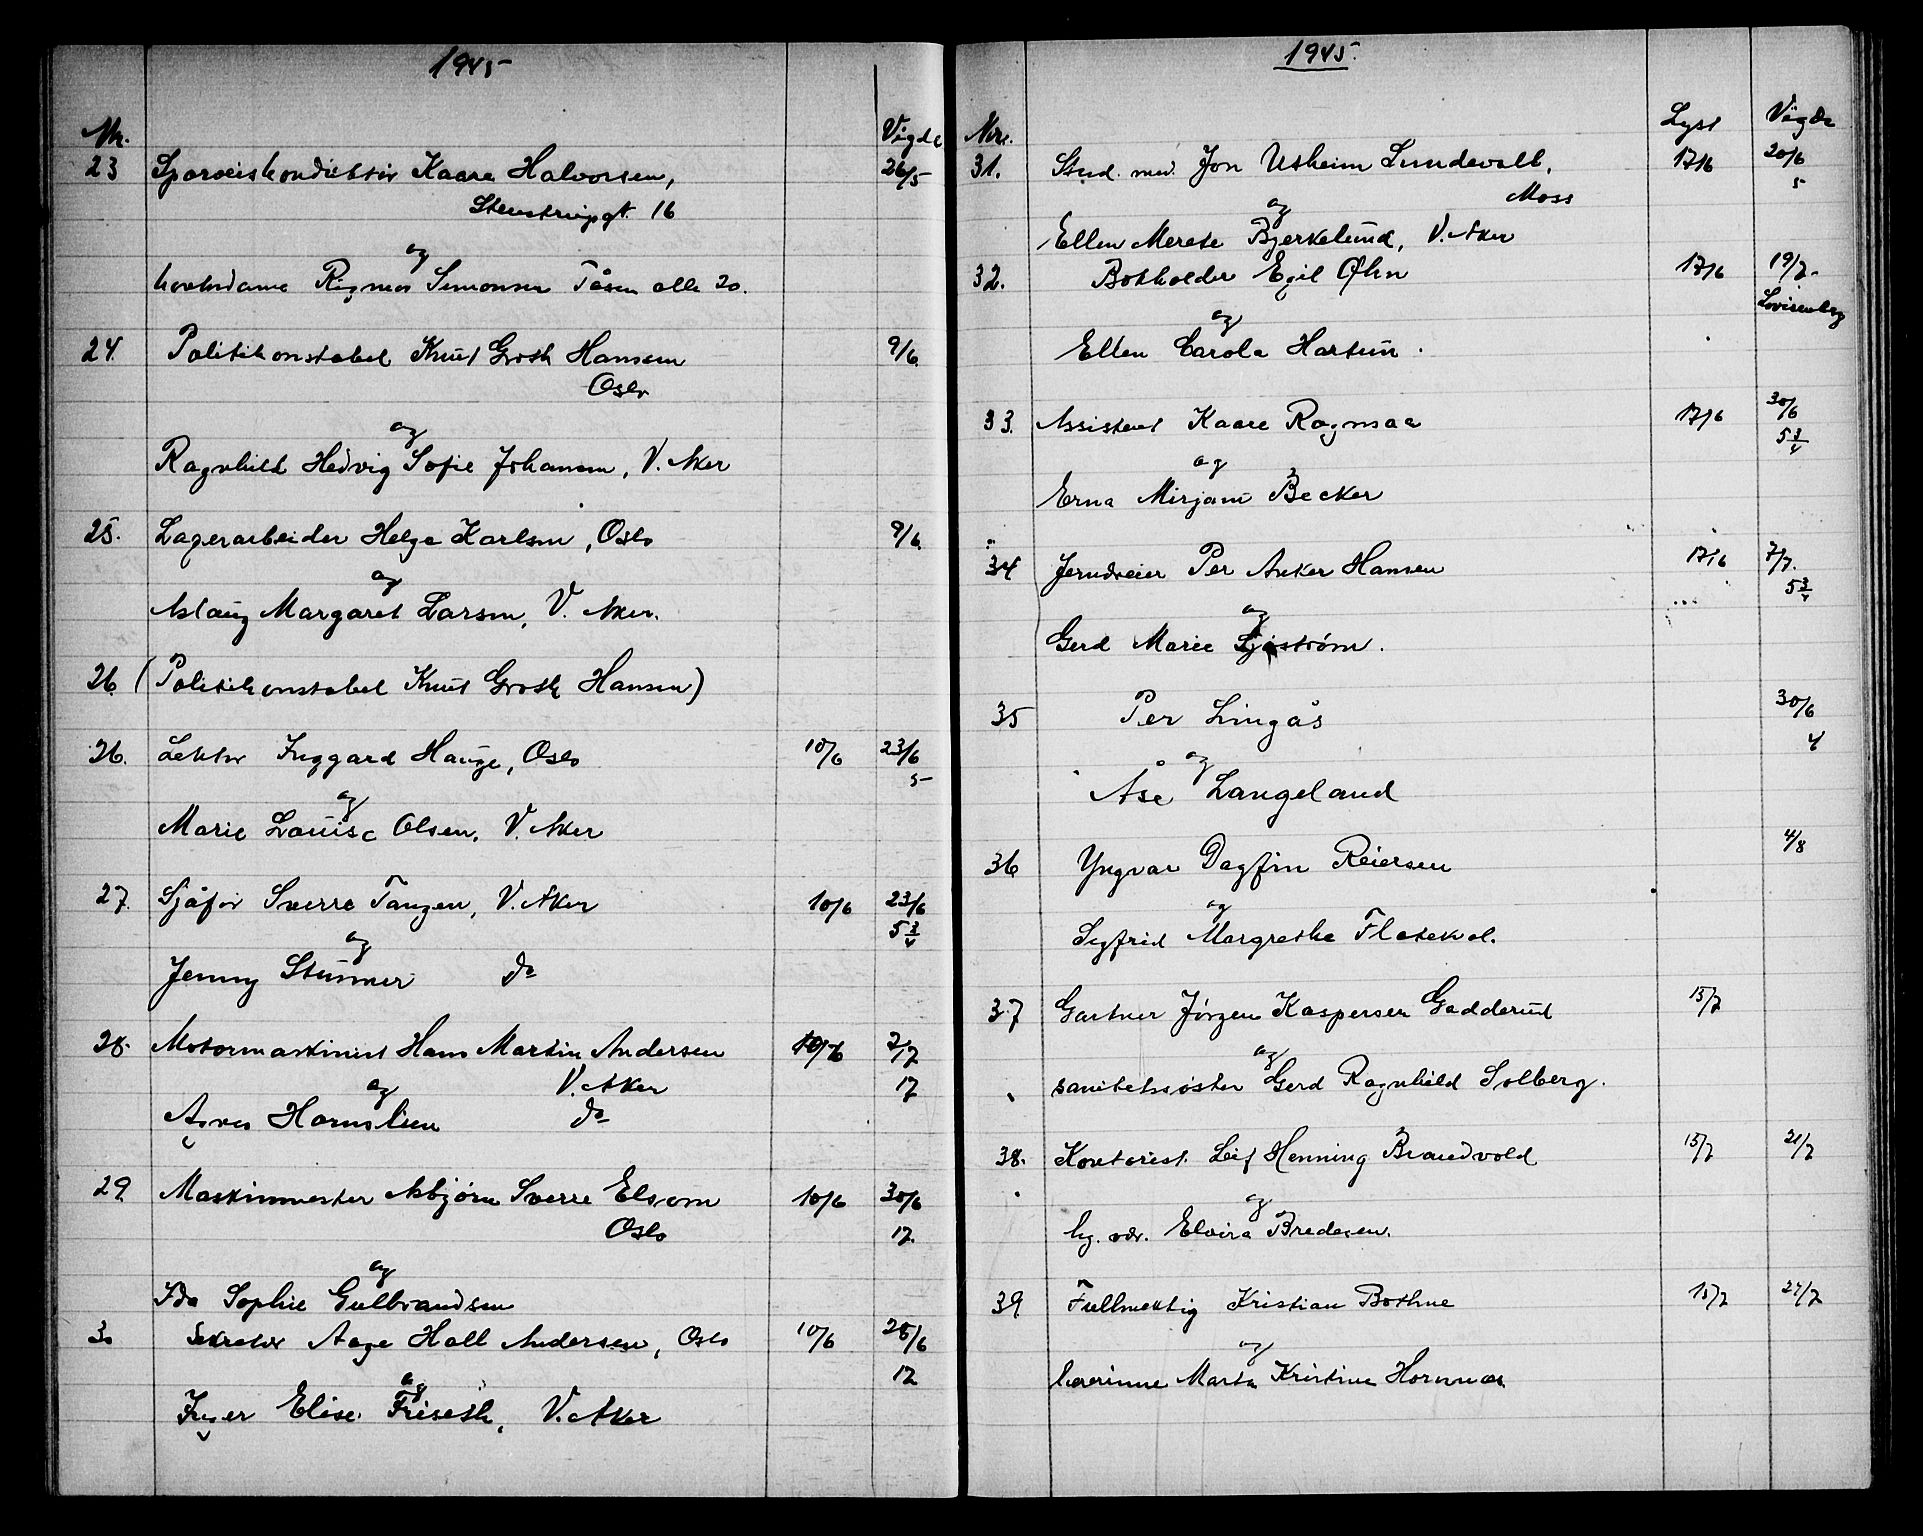 1945
Nr. Vigde
23 Sporveiskonduktør Kaare Halvorsen, 26/5
Stenstrupgt. 16
og
kontordame Rigmor Simonsen Tåsen alle 20.
24. Politikonstabel Knut Groth Hansen 9/6.
Oslo
og
Ragnhild Hedvig Sofie Johansen, V. Aker
25. Lagerarbeider Helge Karlsen, Oslo 9/6.
og
Aslaug Margaret Larsen, V. Aker.
26. (Politikonstabel Knut Groth Hansen)
26. Lektor Inggard Hauge, Oslo 10/6 23/6
5
og
Marie Louise Olsen, V. Aker
27. Sjåfør Sverre Tangen, V. Aker 10/6 23/6
5 3/4
og
Jenny Stürmer do
28. Motormaskinist Hans Martin Andersen 10/6 7/7
V. Aker 17
og
Agnes Hornslien do
29. Maskinmester Asbjørn Sverre Elsom 10/6 30/6
Oslo 17.
og
Ida Sophie Gulbrandsen
30 Sekretær Aage Hall Andersen, Oslo 10/6 28/6
17
og
Inger Elise Friseth, V. Aker
1945.
Nr. Lyst Vigde
31. Stud. med. Jon Utheim Lundevall, 17/6 20/6
Moss 5
og
Ellen Merete Bjerkelund, V. Aker
32. Bokholder Egil Øhn 17/6 19/7.
Lovisenberg
og
Ellen Carola Hartun.
33. Assistent Kaare Rogmaa 17/6 30/6
5 3/4
og
Erna Mirjam Becker
34 Jerndreier Per Anker Hansen 17/6 7/7.
5 3/4
og
Gerd Marie Sjøstrøm.
35 Per Lingås 30/6
4
og
Åse Langeland
36 Yngvar Dagfin Reiersen 4/8
og
Sigfrid Margrethe Flatekval.
37 Gartner Jörgen Kaspersen Gadderud 15/7
og
sanitetssøster Gerd Ragnhild Solberg.
38. Kontorist. Leif Henning Brandvold 15/7 21/7
og
hj. vær. Elvira Bredesen.
39 Fullmektig Kristian Bothne 15/7 27/7
og
lærerinne Marta Kristine Hornnæs